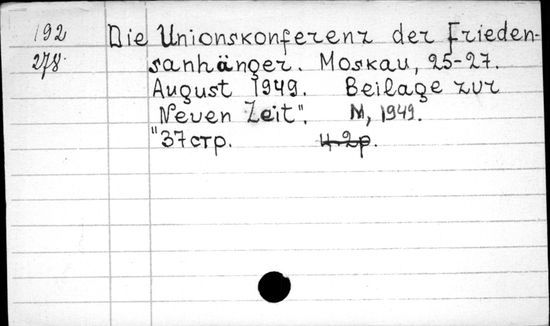 192 Die Unionskonferenz der Frieden-
278 sanhänger. Moskau, 25-27.
August 1949. Beilage zur
Neuen Zeit". M, 1949.
"37 стр. ц. 2р.